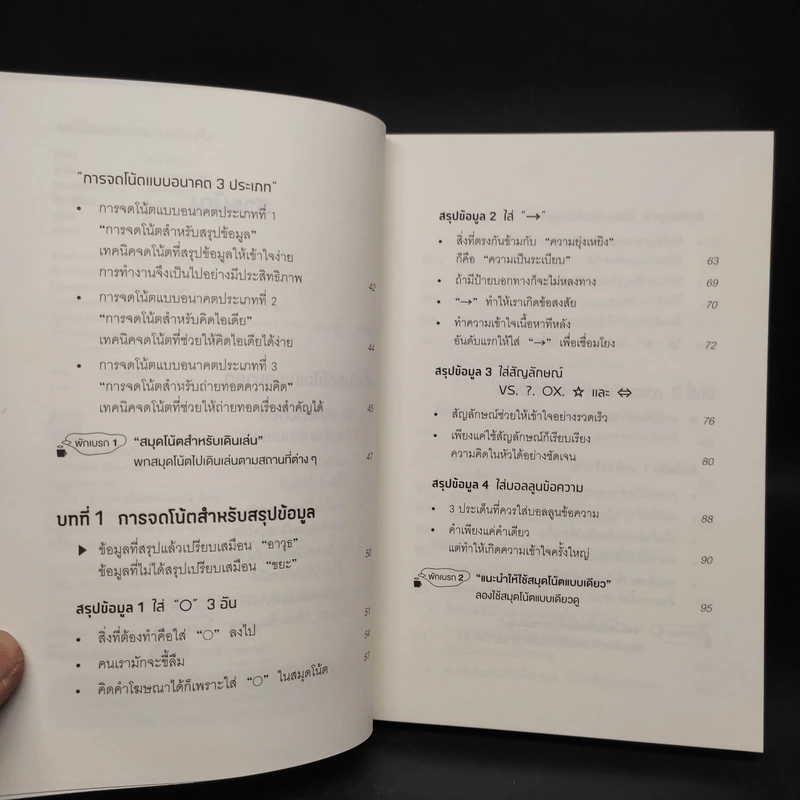 "การจดโน้ตแบบอนาคต 3 ประเภท"
• การจดโน้ตแบบอนาคตประเภทที่ 1
"การจดโน้ตสำหรับสรุปข้อมูล"
เทคนิคจดโน้ตที่สรุปข้อมูลให้เข้าใจง่าย
การทำงานจึงเป็นไปอย่างมีประสิทธิภาพ 42
• การจดโน้ตแบบอนาคตประเภทที่ 2
"การจดโน้ตสำหรับคิดไอเดีย"
เทคนิคจดโน้ตที่ช่วยให้คิดไอเดียได้ง่าย 44
• การจดโน้ตแบบอนาคตประเภทที่ 3
"การจดโน้ตสำหรับถ่ายทอดความคิด"
เทคนิคจดโน้ตที่ช่วยให้ถ่ายทอดเรื่องสำคัญได้ 45
พักเบรก 1 "สมุดโน้ตสำหรับเดินเล่น"
พกสมุดโน้ตไปเดินเล่นตามสถานที่ต่าง ๆ 47
บทที่ 1 การจดโน้ตสำหรับสรุปข้อมูล
▶ ข้อมูลที่สรุปแล้วเปรียบเสมือน "อาวุธ"
ข้อมูลที่ไม่ได้สรุปเปรียบเสมือน "ขยะ" 50
สรุปข้อมูล 1 ใส่ "○" 3 อัน 51
• สิ่งที่ต้องทำคือใส่ "○" ลงไป 54
• คนเรามักจะขี้ลืม 57
• คิดคำโฆษณาได้ก็เพราะใส่ "○" ในสมุดโน้ต
สรุปข้อมูล 2 ใส่ "→"
• สิ่งที่ตรงกันข้ามกับ "ความยุ่งเหยิง"
ก็คือ "ความเป็นระเบียบ" 63
• ถ้ามีป้ายบอกทางก็จะไม่หลงทาง 69
• "→" ทำให้เราเกิดข้อสงสัย 70
• ทำความเข้าใจเนื้อหาทีหลัง
อันดับแรกให้ใส่ "→" เพื่อเชื่อมโยง 72
สรุปข้อมูล 3 ใส่สัญลักษณ์
VS, ?, OX, ☆ และ ⇔
• สัญลักษณ์ช่วยให้เข้าใจอย่างรวดเร็ว 76
• เพียงแค่ใช้สัญลักษณ์ก็เรียบเรียง
ความคิดในหัวได้อย่างชัดเจน 80
สรุปข้อมูล 4 ใส่บอลลูนข้อความ
• 3 ประเด็นที่ควรใส่บอลลูนข้อความ 88
• คำเพียงแค่คำเดียว
แต่ทำให้เกิดความเข้าใจครั้งใหญ่ 90
พักเบรก 2 "แนะนำให้ใช้สมุดโน้ตแบบเดียว"
ลองใช้สมุดโน้ตแบบเดียวดู 95